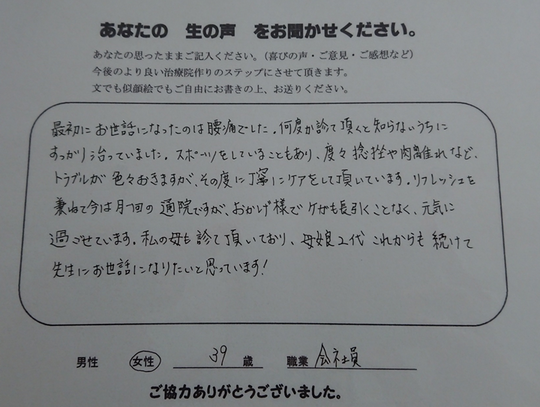 あなたの 生の声 をお聞かせください。
あなたの思ったままご記入ください。（喜びの声・ご意見・ご感想など）
今後のより良い治療院作りのステップにさせて頂きます。
文でも似顔絵でもご自由にお書きの上、お送りください。
最初にお世話になったのは腰痛でした。何度か診て頂くと知らないうちに
すっかり治っていました。スポーツをしていることもあり、度々捻挫や肉離れなど、
トラブルが色々おきますが、その度に丁寧にケアをして頂いています。リフレッシュを
兼ねて今は月1回の通院ですが、おかげ様でケガも長引くことなく、元気に
過ごせています。私の母も診て頂いており、母娘2代これからも続けて
先生にお世話になりたいと思っています！
男性 女性 39 歳 職業 会社員
ご協力ありがとうございました。